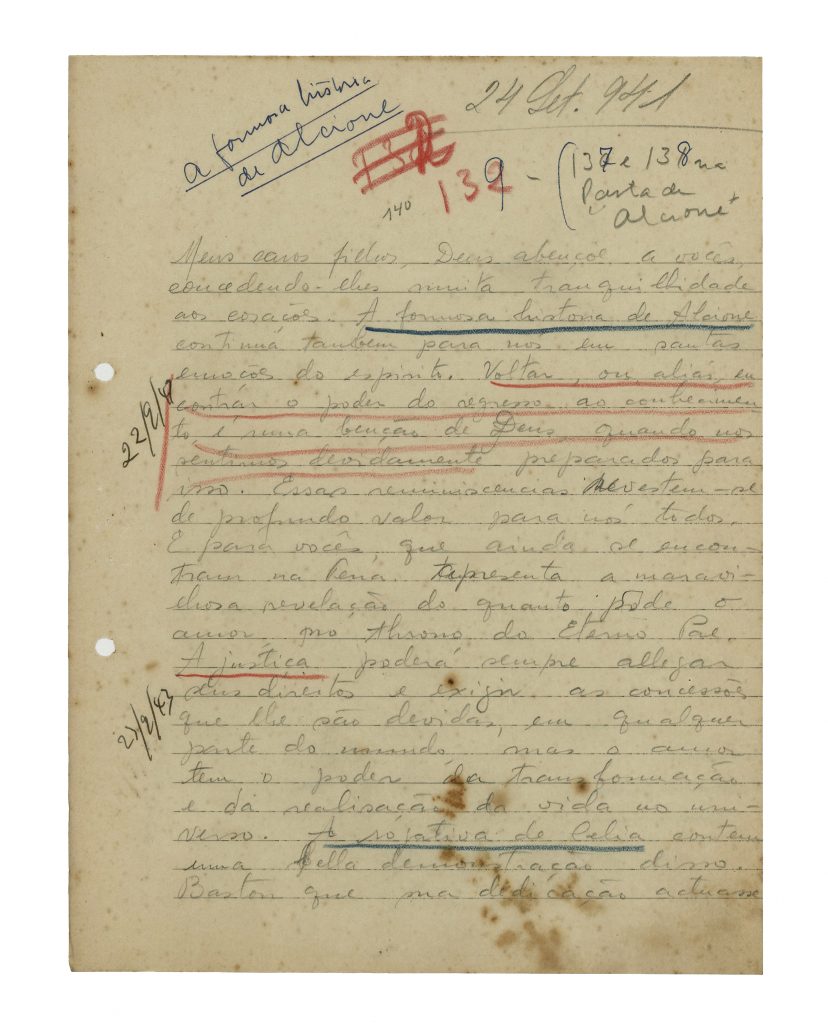 24 Set. 941
a formosa história
de Alcione
132
139 - (137 e 138 na
Pasta de
"Alcione"
140
Meus caros filhos, Deus abençoe a vocês,
concedendo-lhes muita tranquilhidade
aos corações. A formosa historia de Alcione
continuá tambem para nos em santas
emoções do espirito. Voltar, ou, aliás, en
contrár o poder do regresso ao conhecimen
to, é uma benção de Deus, quando nos
sentimos devidamente preparados para
isso. Essas reminiscencias revestem-se
de profundo valor para nós todos.
E para vocês, que ainda se encon-
tram na Terra representa a maravi-
lhosa revelação do quanto póde o
amor, no throno do Eterno Pae.
A justiça poderá sempre allegar
seus direitos e exigir as concessões
que lhe são devidas, em qualquer
parte do mundo mas o amor
tem o poder da transformação
e da realisação da vida no uni-
verso. A rogativa de Celia contem
uma bella demonstração disso.
Bastou que sua dedicação actuasse
22/9/
21/9/43